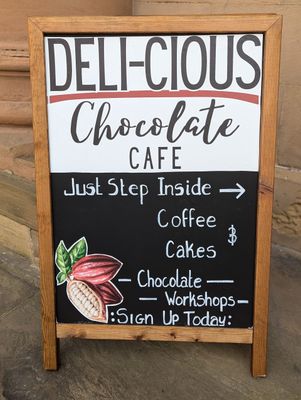 DELI-CIOUS
Chocolate
CAFE
Just Step Inside →
Coffee
Cakes
Chocolate
Workshops
:Sign Up Today: